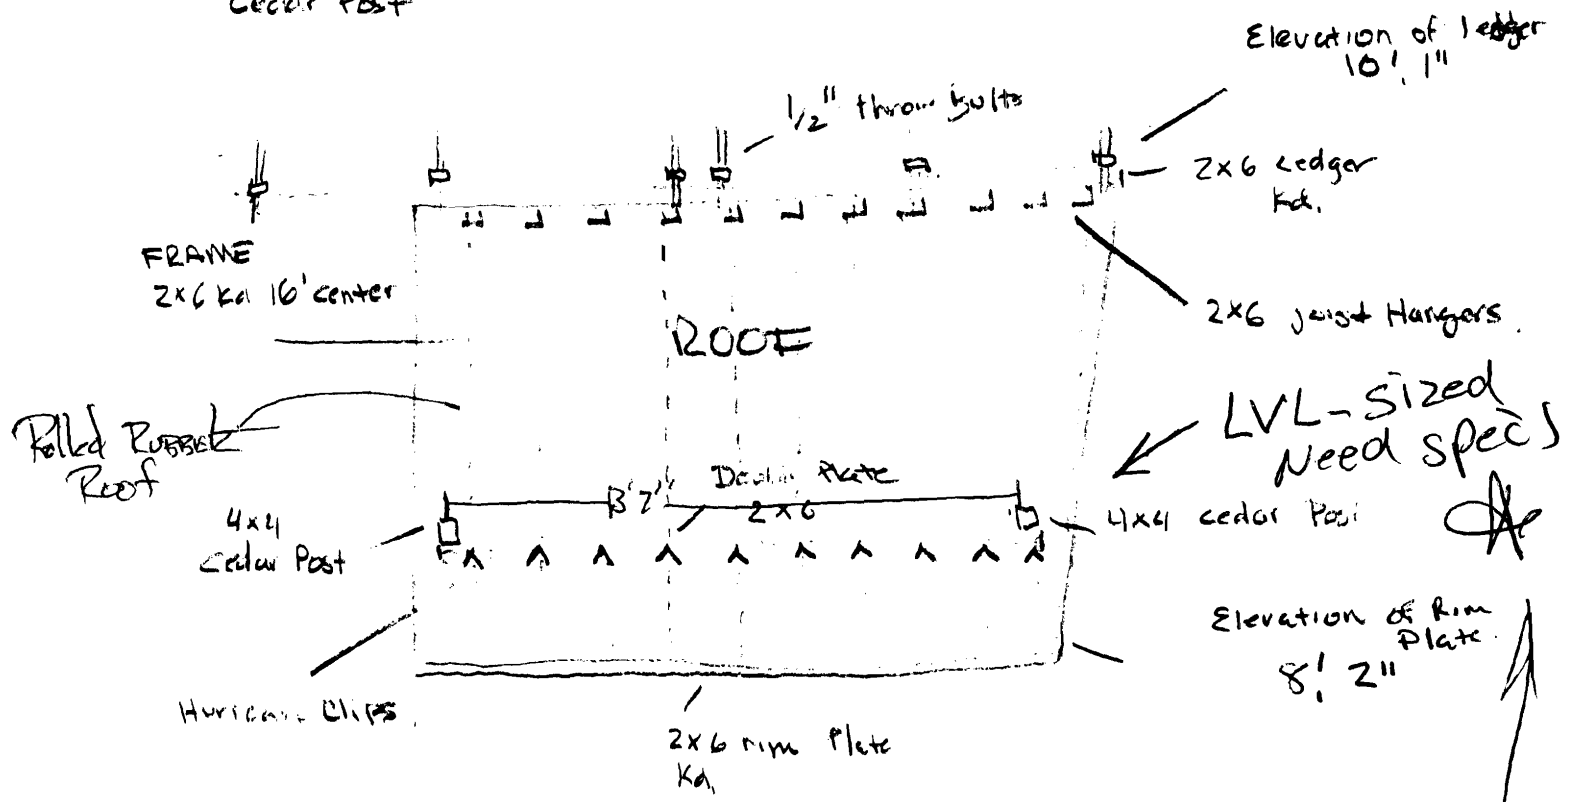 Cedar Post
Elevation of ledger
10', 1"
1/2" throw bolts
2x6 Ledger
Kd.
FRAME
2x6 Kd 16' center
2x6 joist Hangers.
ROOF
LVL-sized
Need specs
Rolled RUBBER
Roof
Plate
2x6
4x4
Cedar Post
4x4 cedar Post
Elevation of Rim
Plate.
8', 2"
Clips
2x6 rim Plate
Kd,